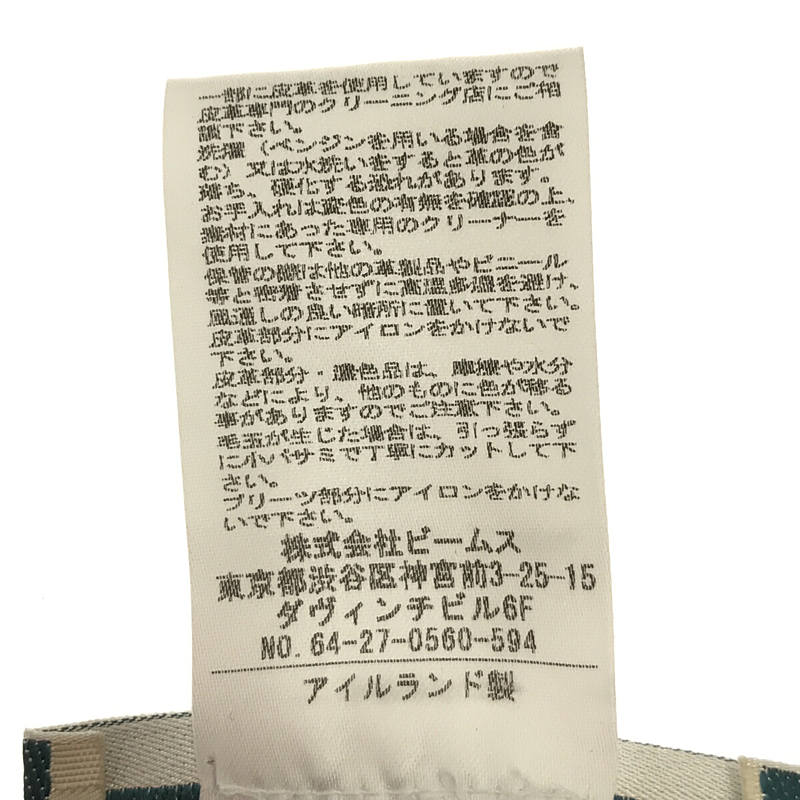 一部に皮革を使用していますので
皮革専門のクリーニング店にご相
談下さい。
洗濯（ベンジンを用いる場合を含
む）又は水洗いをすると革の色が
落ち、硬化する恐れがあります。
お手入れは変色の有無を確認の上、
素材にあった専用のクリーナーを
使用して下さい。
保管の際は他の革製品やビニール
等と密着させずに高温多湿を避け、
風通しの良い暗所に置いて下さい。
皮革部分にアイロンをかけないで
下さい。
皮革部分・濃色品は、摩擦や水分
などにより、他のものに色が移る
事がありますのでご注意下さい。
毛玉が生じた場合は、引っ張らず
に小バサミで丁寧にカットして下
さい。
プリーツ部分にアイロンをかけな
いで下さい。
株式会社ビームス
東京都渋谷区神宮前3-25-15
ダヴィンチビル6F
NO. 64-27-0560-594
アイルランド製